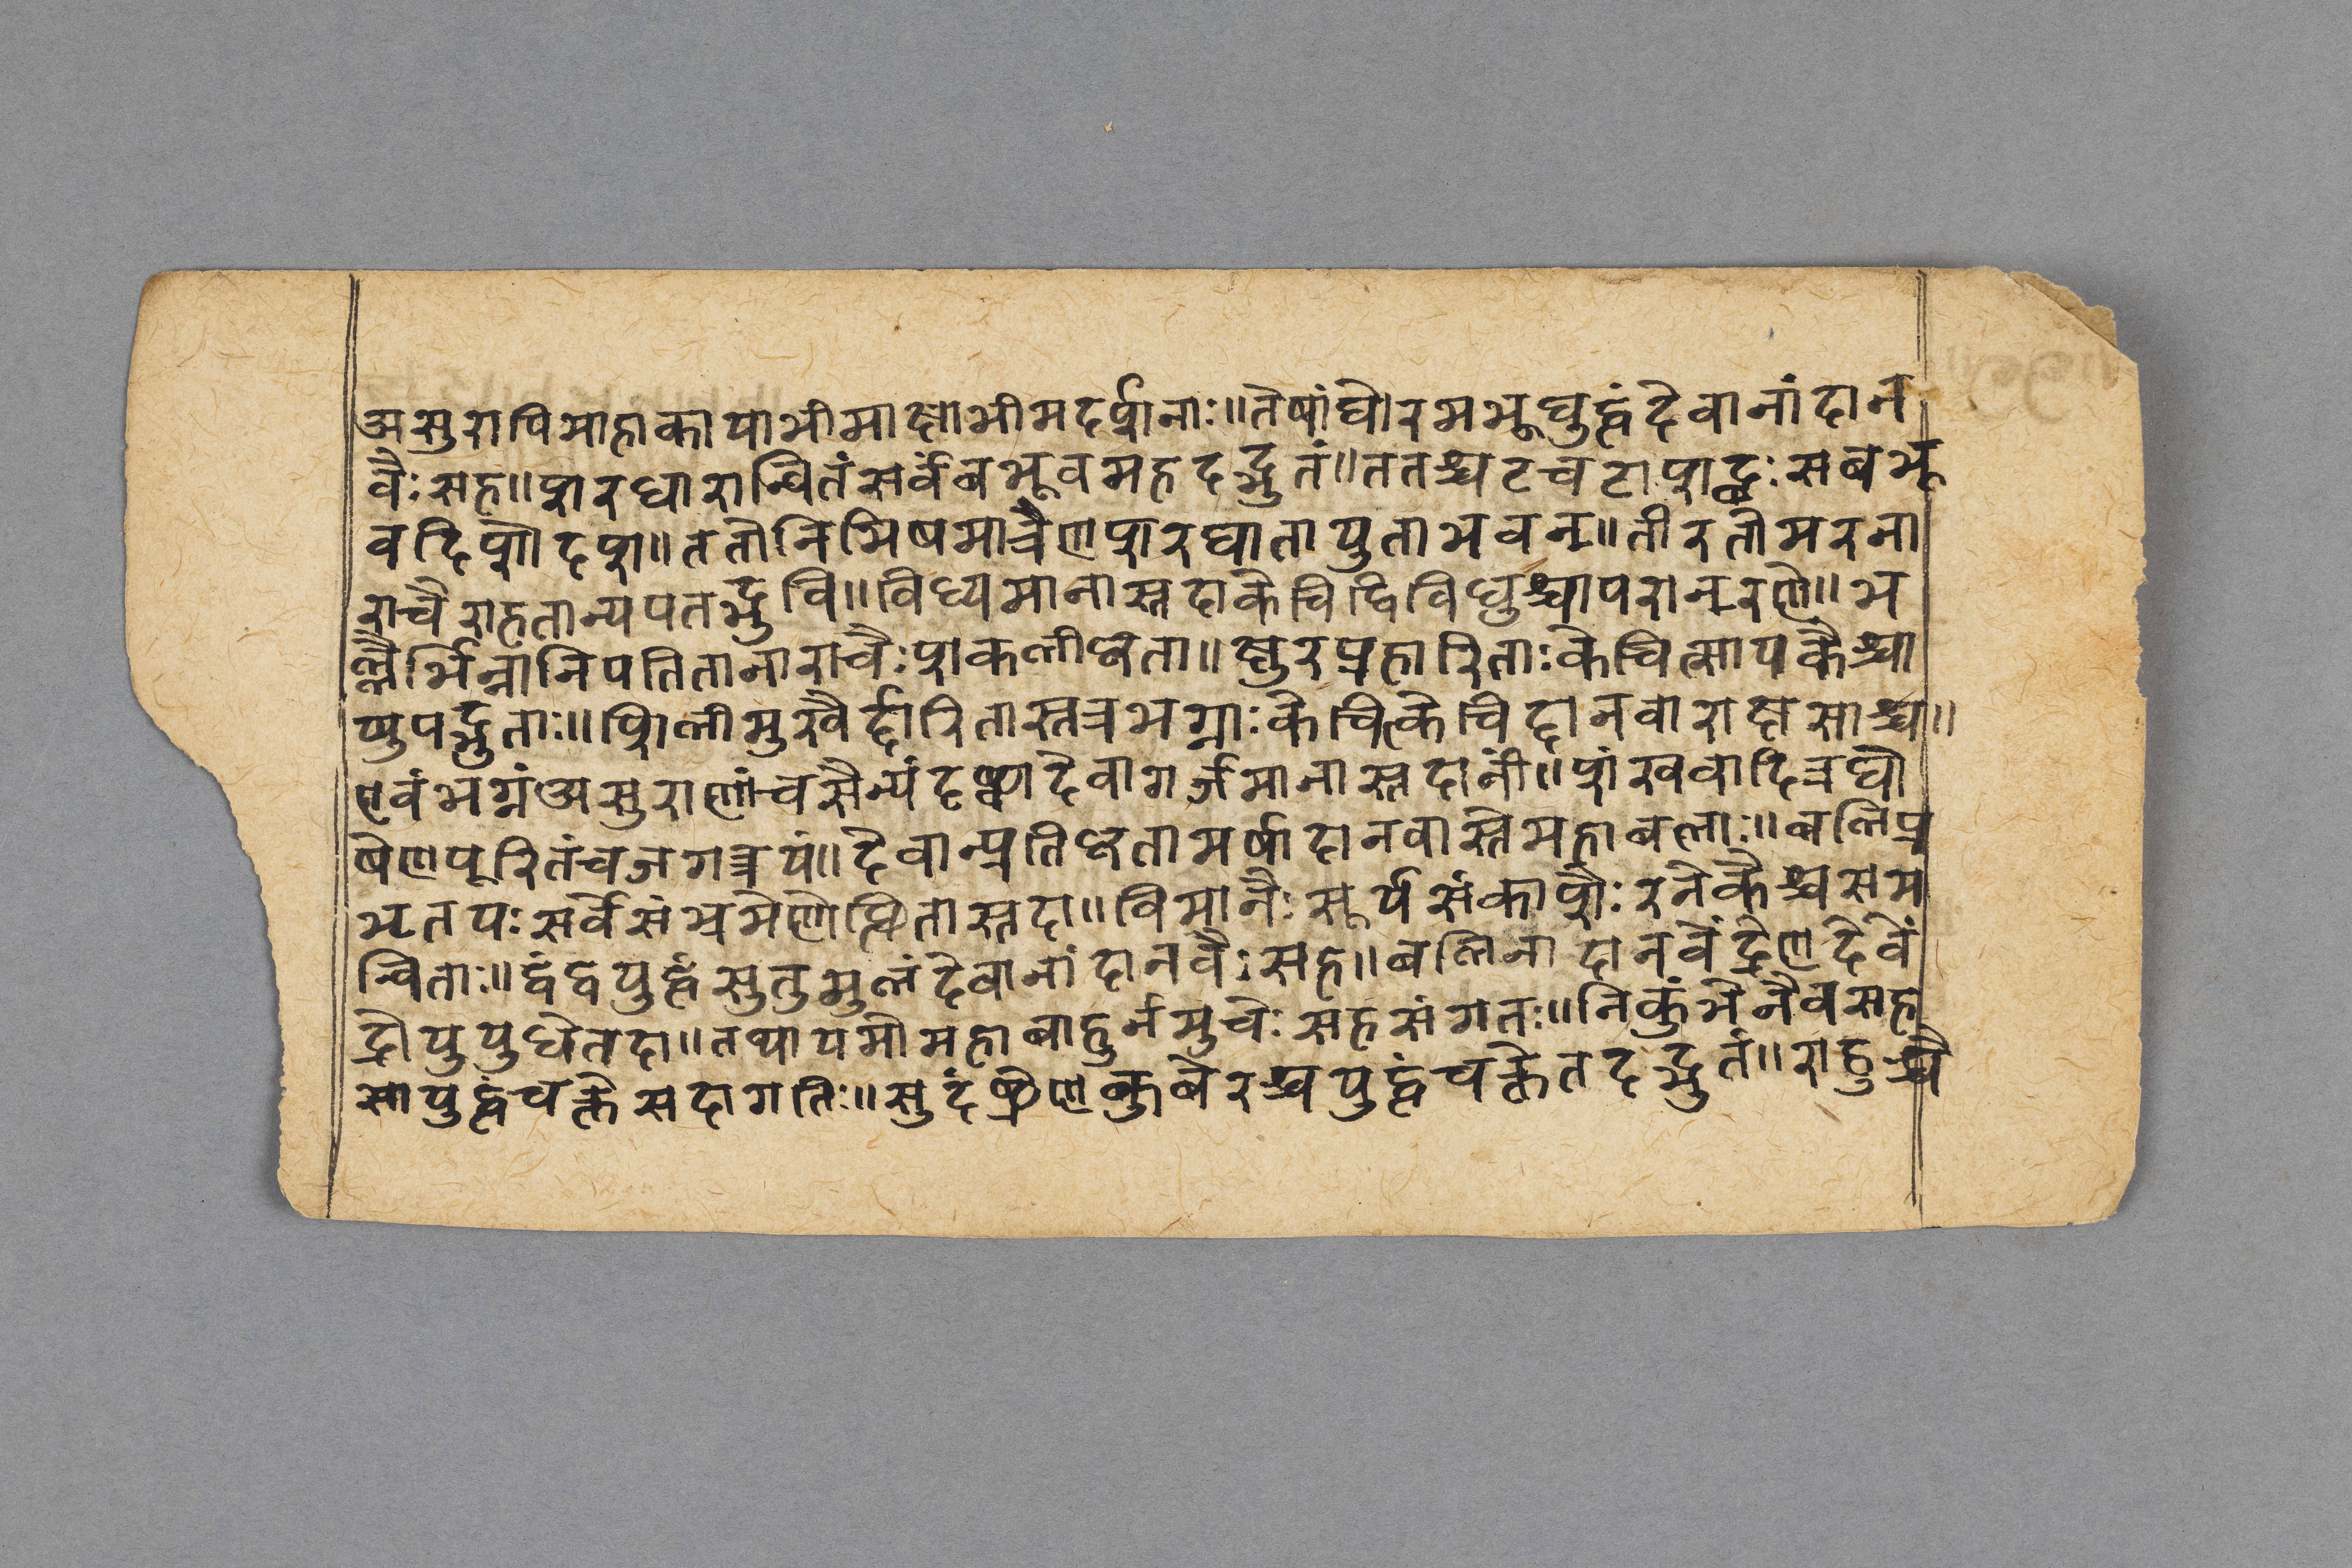 असुरापिमाहाकायाभीमाक्षाभीमदर्शनाः॥तेषांघोरमभूद्युद्धंदेवानांदान
वैः सह॥शरधारान्वितंसर्वंबभूवमहदद्भुतं॥ततश्चटचटाशब्दः सबभू
वदिशोदश॥ततोनिमिषमात्रेणशरघातायुताभवन्॥तीरतोमरना
राचैराहतान्यपतद्भुवि॥विध्यमानास्तदाकेचिद्विविधुश्चापरान्रणे॥भ
ल्लैर्भिन्नानिपतितानाराचैः शकलीकृता॥क्षुरप्रहारिताः केचित्सायकैश्चा
प्युपद्रुताः॥शिलीमुखैर्द्दारितास्तत्रभग्नाः केचित्केचिद्दानवाराक्षसाश्च॥
एवंभग्नंअसुराणांचसैन्यंदृष्ट्वादेवागर्जमानास्तदांनीं॥शंखवादित्रघो
षेणपूरितंचजगत्त्रयं॥देवान्प्रतिकृतामर्षादानवास्तेमहाबलाः॥बलिप्र
भृतयः सर्वेसंभ्रमेणोत्थितास्तदा॥विमानैः सूर्यसंकाशैः रनेकैश्चसम
न्विताः॥द्वंद्वयुद्धंसुतुमुलंदेवानांदानवैः सह॥बलिनादानवेंद्रेणदेवें
द्रोयुयुधेतदा॥तथायमोमहाबाहुर्नमुचेः सहसंगतः॥निकुंभेनैवसह
सायुद्धंचक्रेसदागतिः॥सुदंष्ट्रेणकुबेरश्चयुद्धंचक्रेतदद्भुतं॥राहुश्चै